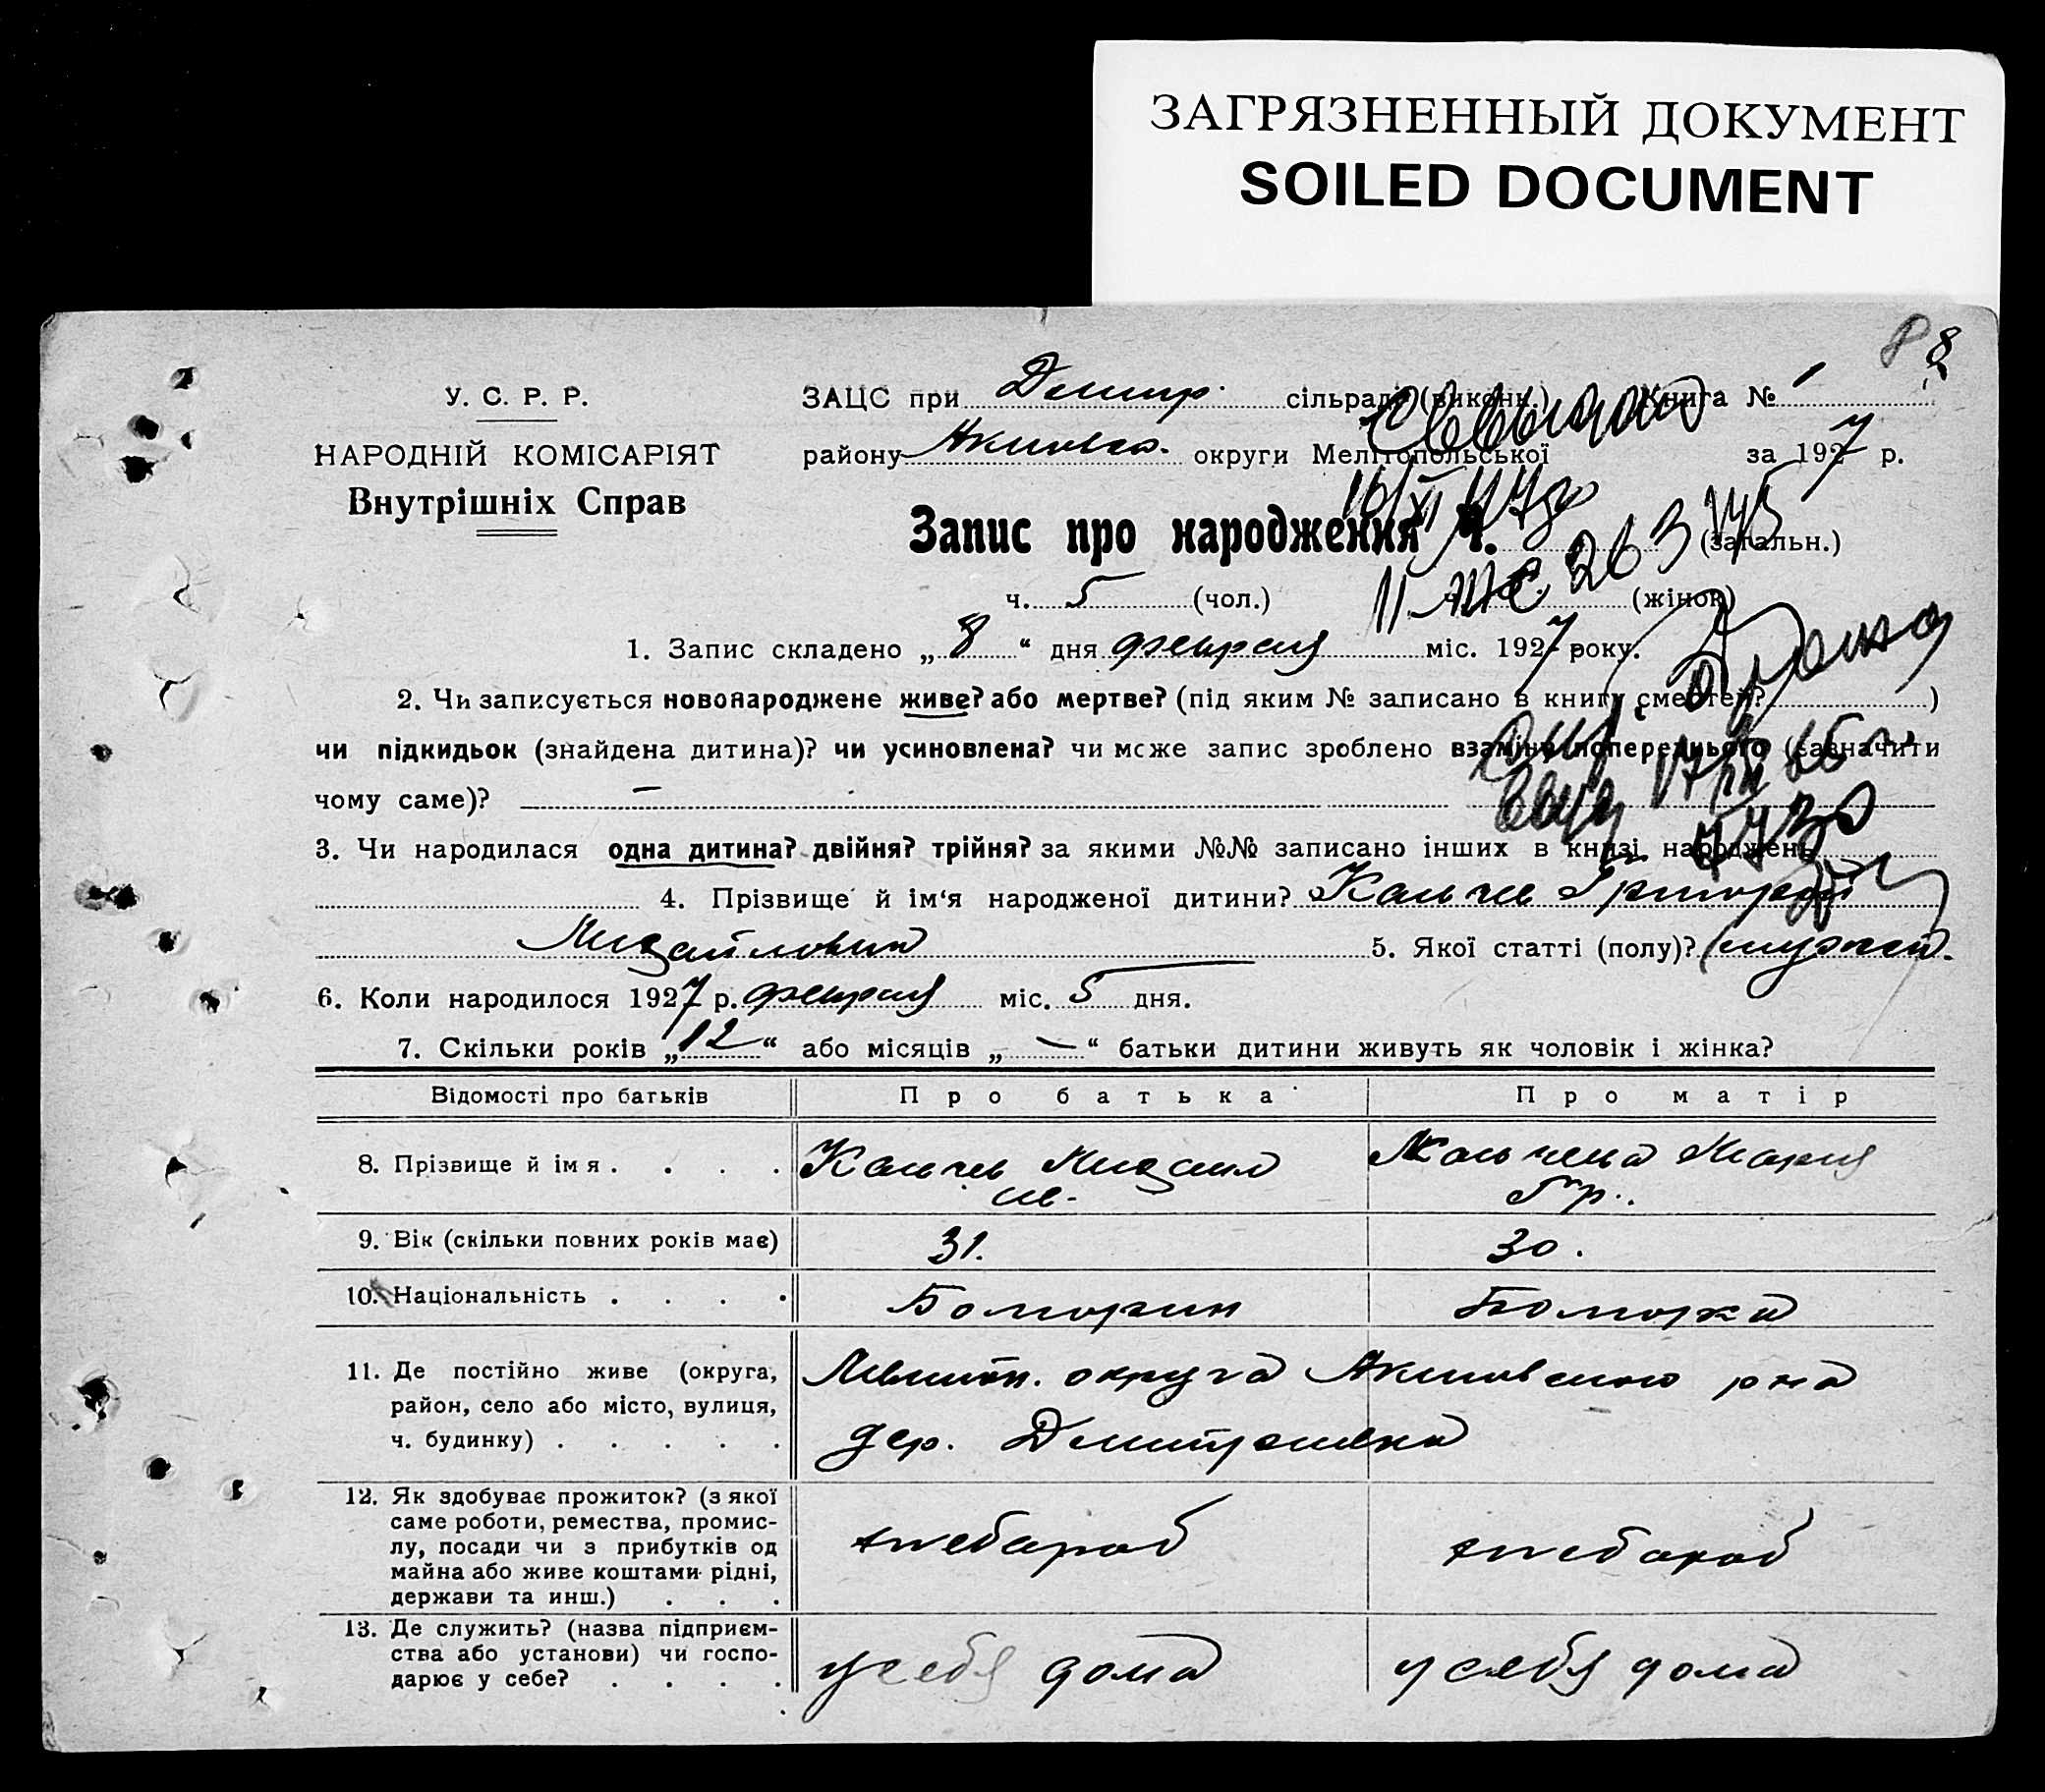 ЗАГРЯЗНЕННЫЙ ДОКУМЕНТ
SOILED DOCUMENT
8 8
У. С. Р. Р.
НАРОДНІЙ КОМІСАРІЯТ
Внутрішніх Справ
ЗАЦС при Дмитр. сільраді (виконк.) Книга № 1
району Акимов. округи Мелітопольської за 1927 р.
Запис про народження Ч. (загальн.)
ч. 5 (чол.) ч. (жінок)
1. Запис складено „8“ дня февраля міс. 1927 року.
2. Чи записується новонароджене живе? або мертве? (під яким № записано в книгу смертей? )
чи підкидьок (знайдена дитина)? чи усиновлена? чи може запис зроблено взамін попереднього (зазначити
чому саме)? —
3. Чи народилася одна дитина? двійня? трійня? за якими №№ записано інших в книзі народжень
4. Прізвище й ім‘я народженої дитини? Кальчев Григорий
Михайлович 5. Якої статті (полу)? мужск.
6. Коли народилося 1927 р. февраля міс. 5 дня.
7. Скільки років „12“ або місяців „—“ батьки дитини живуть як чоловік і жінка?
Відомості про батьків Про батька Про матір
8. Прізвище й імя . . . . Кальчев Михаил Кальчева Мария
Гр.
9. Вік (скільки повних років має) 31. 30.
10. Національність . . . . Болгарин Болгарка
11. Де постійно живе (округа,
район, село або місто, вулиця,
ч. будинку) . . . . .
Мелитоп. округа Акимовского р-на
дер. Дмитровка
12. Як здобуває прожиток? (з якої
саме роботи, ремества, промис-
лу, посади чи з прибутків од
майна або живе коштами рідні,
держави та инш.) . . .
хлебороб хлебороб
13. Де служить? (назва підприєм-
ства або установи) чи госпо-
дарює у себе? . . . .
у себя дома у себя дома